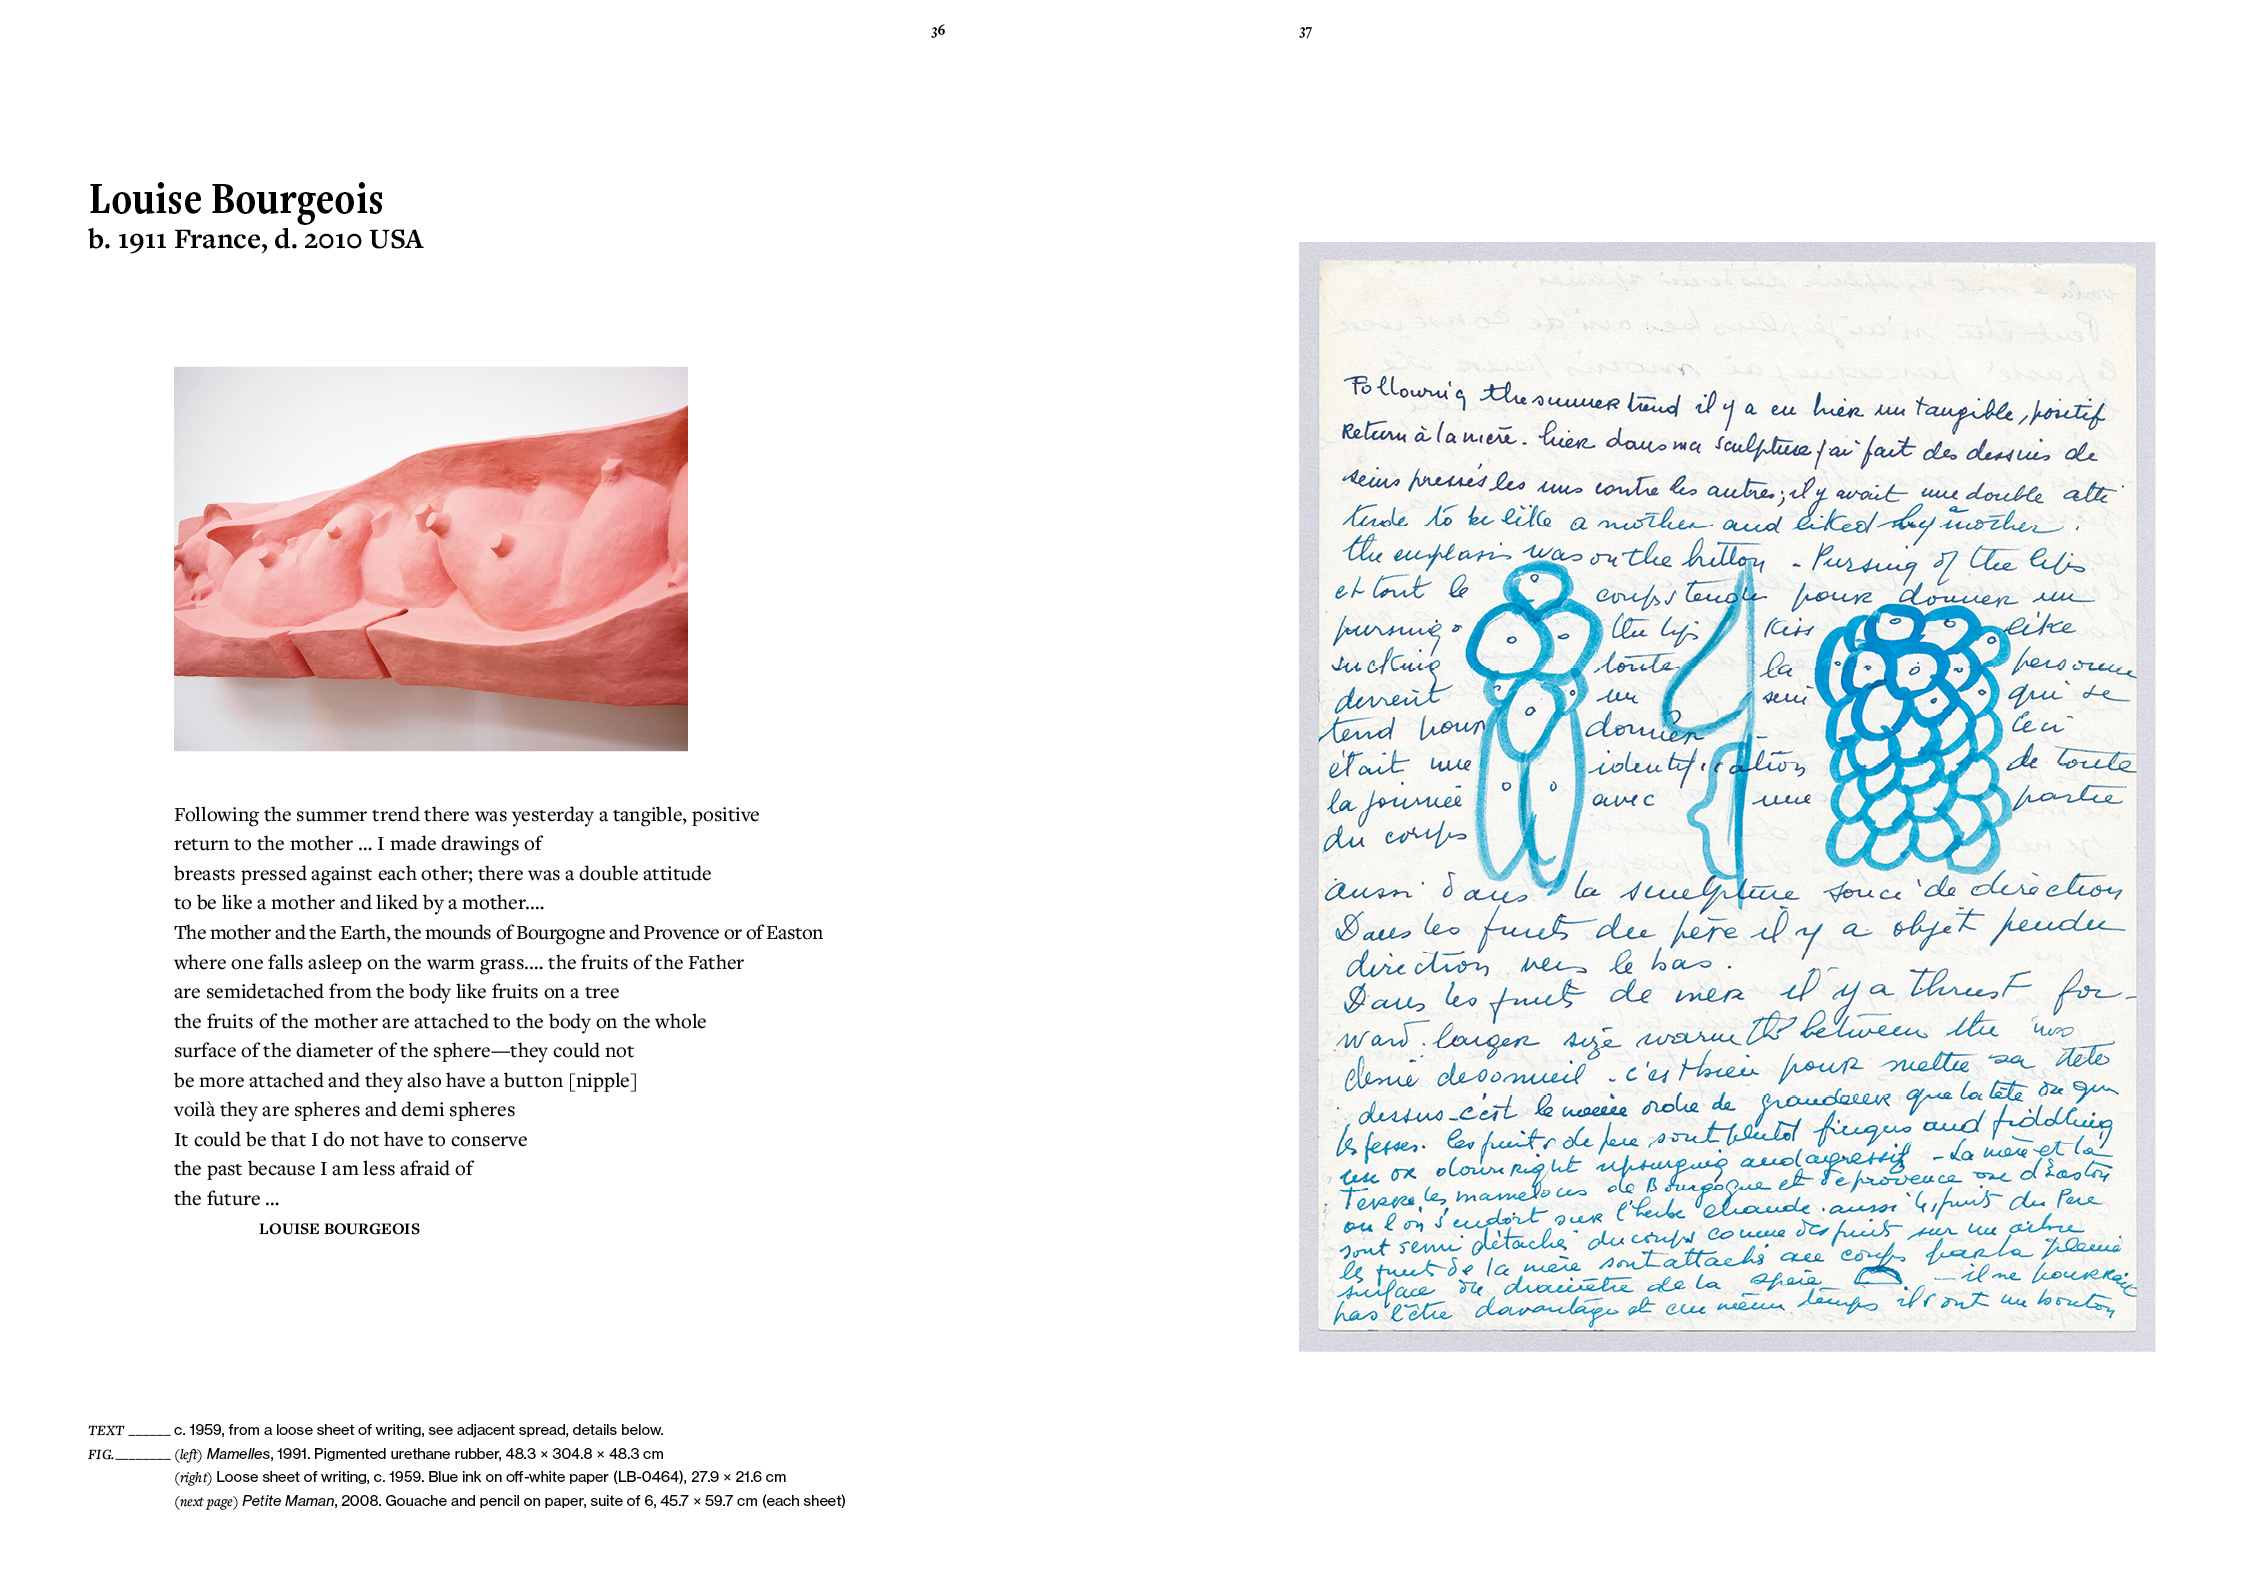 36
37
Louise Bourgeois
b. 1911 France, d. 2010 USA
Following the summer trend there was yesterday a tangible, positive
return to the mother ... I made drawings of
breasts pressed against each other; there was a double attitude
to be like a mother and liked by a mother....
The mother and the Earth, the mounds of Bourgogne and Provence or of Easton
where one falls asleep on the warm grass.... the fruits of the Father
are semidetached from the body like fruits on a tree
the fruits of the mother are attached to the body on the whole
surface of the diameter of the sphere—they could not
be more attached and they also have a button [nipple]
voilà they are spheres and demi spheres
It could be that I do not have to conserve
the past because I am less afraid of
the future ...
LOUISE BOURGEOIS
TEXT ______ c. 1959, from a loose sheet of writing, see adjacent spread, details below.
FIG.________ (left) Mamelles, 1991. Pigmented urethane rubber, 48.3 × 304.8 × 48.3 cm
(right) Loose sheet of writing, c. 1959. Blue ink on off-white paper (LB-0464), 27.9 × 21.6 cm
(next page) Petite Maman, 2008. Gouache and pencil on paper, suite of 6, 45.7 × 59.7 cm (each sheet)
Following the summer trend il y a eu hier un tangible, positif
Return à la mère. hier dans ma sculpture j'ai fait des dessins de
seins pressés les uns contre les autres; il y avait une double atti
tude to be like a mother and liked by a mother.
the emphasis was on the button - Pursing of the lips
et tout le corps tendu pour donner un
pursing the lips kiss like
sucking toute la personne
devient un sein qui se
tend pour donner - Ceci
était une identification de toute
la journée avec une partie
du corps
aussi dans la sculpture souci de direction
Dans les fruits du père il y a objet pendu
direction vers le bas.
Dans les fruits de mer il y a thrust for-
ward. larger size warmth between the two
demie de sommeil - c'est bien pour mettre sa tete
dessus - c'est le même ordre de grandeur que la tête ou
les fesses. les fruits de pere sont plutot fingers and fiddling
or downright upsurging and agressif - La mère et la
Terre, les mamelons de Bourgogne et de provence ou d'Easton
ou l'on s'endort sur l'herbe chaude. aussi les fruits du Pere
sont semi détachés du corps comme des fruits sur un arbre
les fruits de la mère sont attachés au corps par la pleine
surface du diamètre de la spère - il ne pourrait
pas l'être davantage et en même temps ils ont un bouton